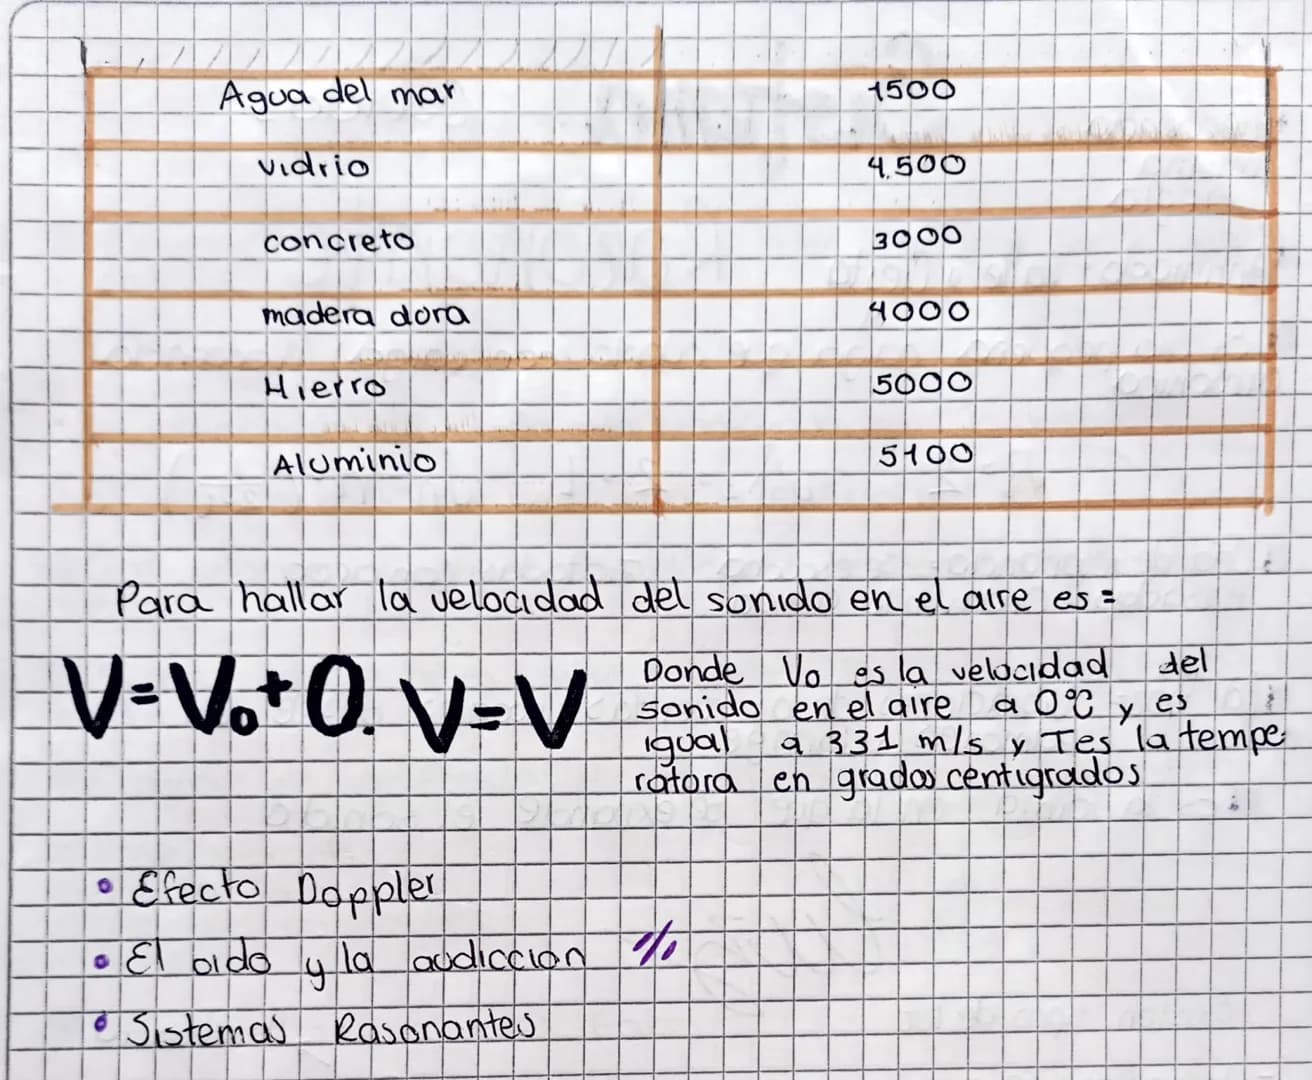 Agua del mar 1500
vidrio 4.500
concreto 3000
madera dora 4000
Hierro 5000
Aluminio 5100
Para hallar la velocidad del sonido en el aire es =
V=Vo+0. V=V
Donde Vo es la velocidad del
sonido en el aire a 0°C y es
igual a 331 m/s y T es la tempe
ratora en grados centigrados
• Efecto Doppler
• El oido y la audiccion %
• Sistemas Rasonantes